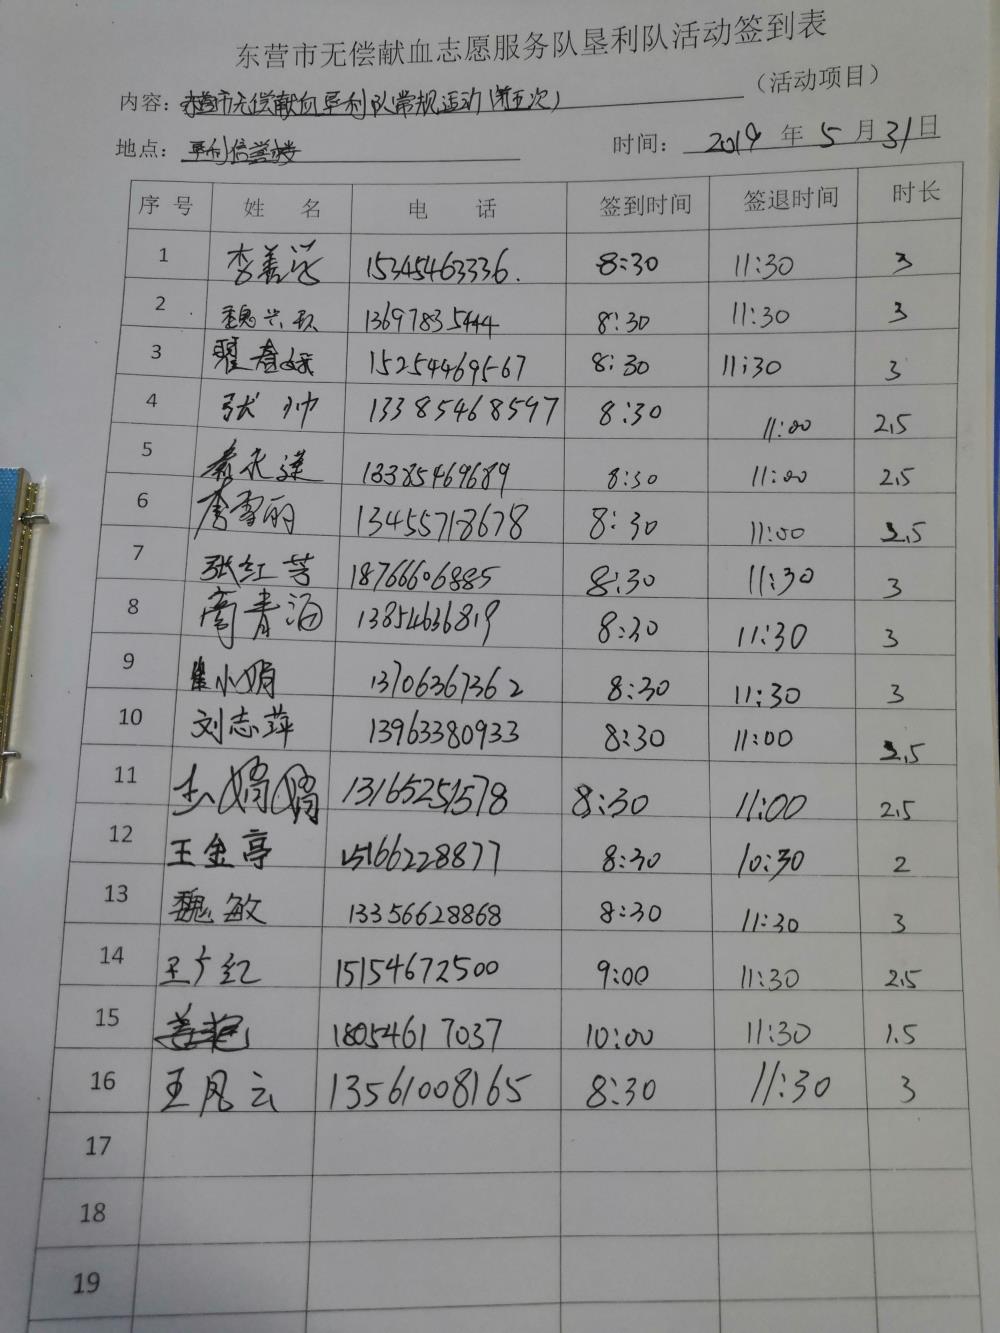 东营市无偿献血志愿服务队垦利队活动签到表
内容： 市无偿献血垦利队常规活动(第五次) （活动项目）
地点： 垦利信誉楼 时间： 2019 年 5 月 31 日
序 号 姓 名 电 话 签到时间 签退时间 时长
1 李善 15345463336. 8:30 11:30 3
2 魏 13697835444 8:30 11:30 3
3 翟春 15254469567 8:30 11:30 3
4 张帅 13385468597 8:30 11:00 2.5
5 秦永莲 13385469689 8:30 11:00 2.5
6 唐雪丽 13455718678 8:30 11:00 2.5
7 张红芳 18766606885 8:30 11:30 3
8 商青海 13854636819 8:30 11:30 3
9 崔小娟 13706367362 8:30 11:30 3
10 刘志萍 13963380933 8:30 11:00 2.5
11 娟娟 13165251578 8:30 11:00 2.5
12 王金亭 15166228877 8:30 10:30 2
13 魏敏 13356628868 8:30 11:30 3
14 王广红 15154672500 9:00 11:30 2.5
15 18054617037 10:00 11:30 1.5
16 王凤云 13561008165 8:30 11:30 3
17
18
19